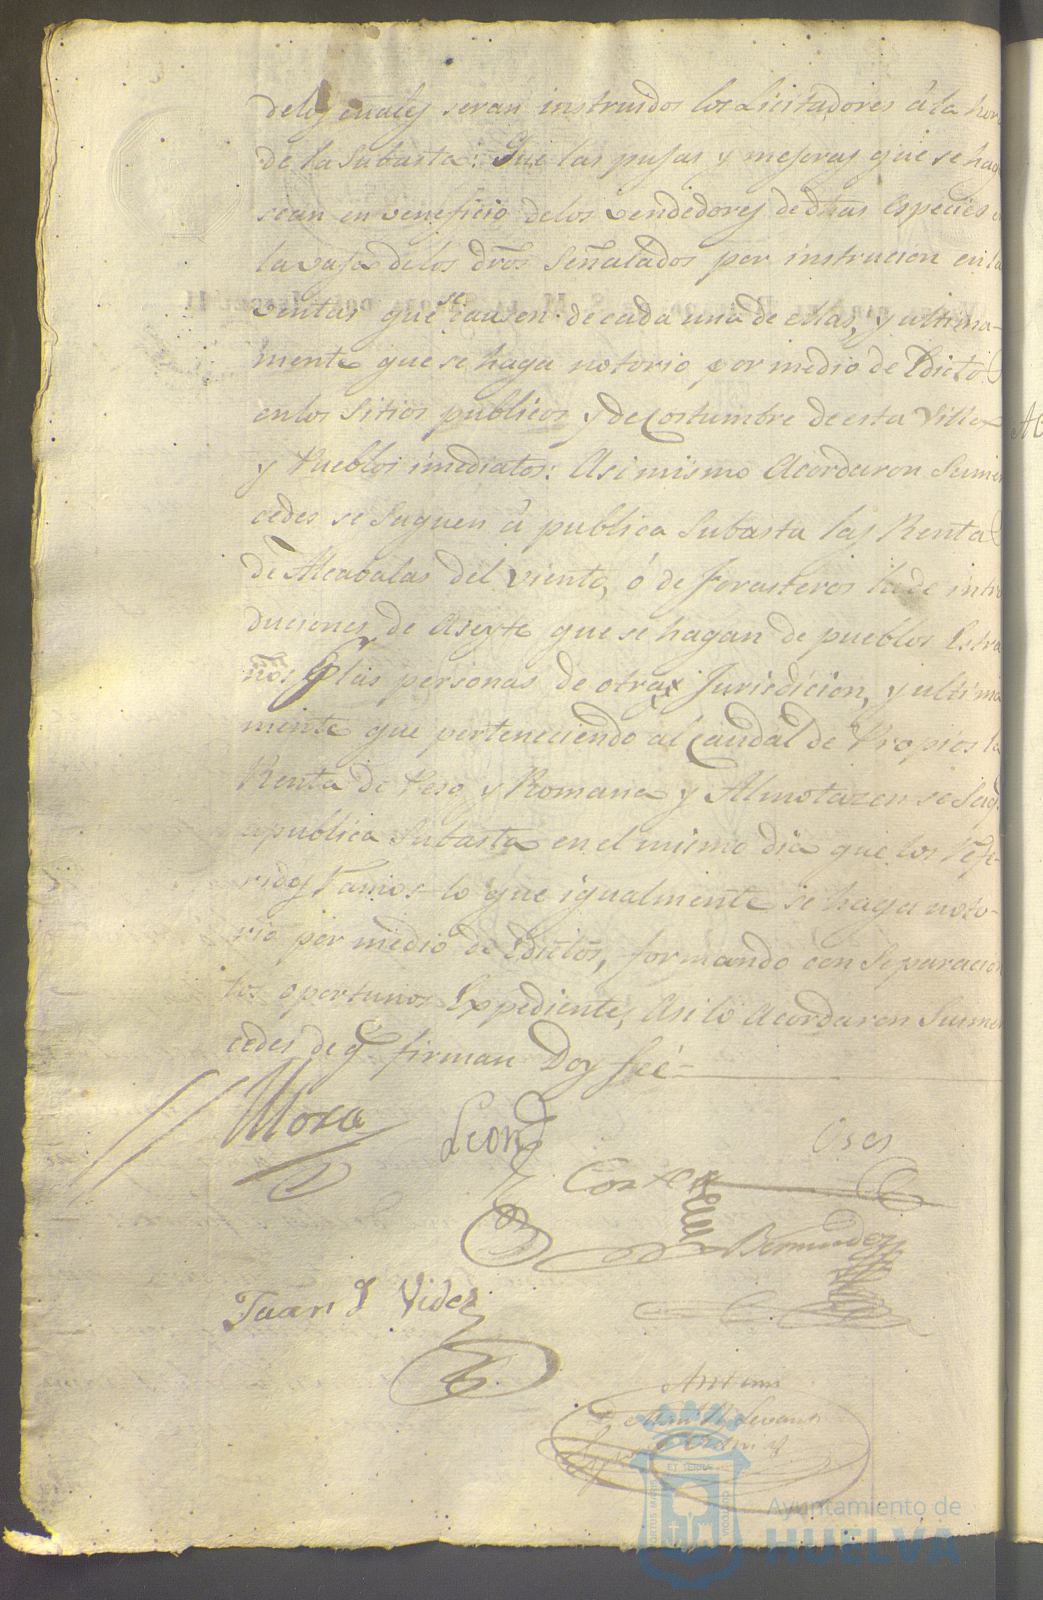 delos cuales seran instruidos los Licitadores á la hora
de la Subasta: Que las pujas y mejoras que se hag
sean en veneficio delos vendedores de dhas Especies
la vaja delos dros Señalados por instrucion en la
ventas que se causen decada una de ellas, y ultima-
mente que se haga notorio por medio de Edictos
enlos Sitios publicos y de Costumbre de esta Villa
y Pueblos imediatos: Asimismo Acordaron Sumer
cedes se Saquen á publica Subasta las Rentas
de Alcavalas del viento, ó de forasteros la de intro
duciones de Aseyte que se hagan de pueblos Estra
ños las personas de otra Jurisdicion, y ultima
mente que perteneciendo al Caudal de Propios la
Renta de Peso y Romana y Almotazen se Saq
apublica Subasta en el mismo dia que los refe-
ridos Ramos lo que igualmente se haga noto-
rio por medio de Edictos, formando con Separacion
los oportunos Expedientes, Asi lo Acordaron Sumer
cedes de q.e firman Doy feé-
Mora
Leon
Oses
Cortes
Bermudez
Juan J Vides
Ante mi
Ayuntamiento de
HUELVA